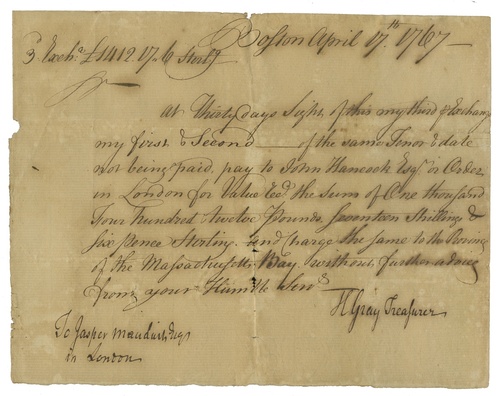 Boston April 17.th 1767
3 Exch.a £1412.17.6 Sterl.g
At Thirty days Sight of this my third of Exchang
my first & Second of the same Tenor & date
not being paid, pay to John Hancock Esq.r or Order
in London for Value Rec.d the Sum of One thousand
four hundred twelve Pounds Seventeen Shillings &
six pence Sterling. And Charge the same to the Province
of the Massachusetts Bay without further advice
from your Humble Serv.t
H Gray Treasurer
To Jasper Mauduit Esq
in London